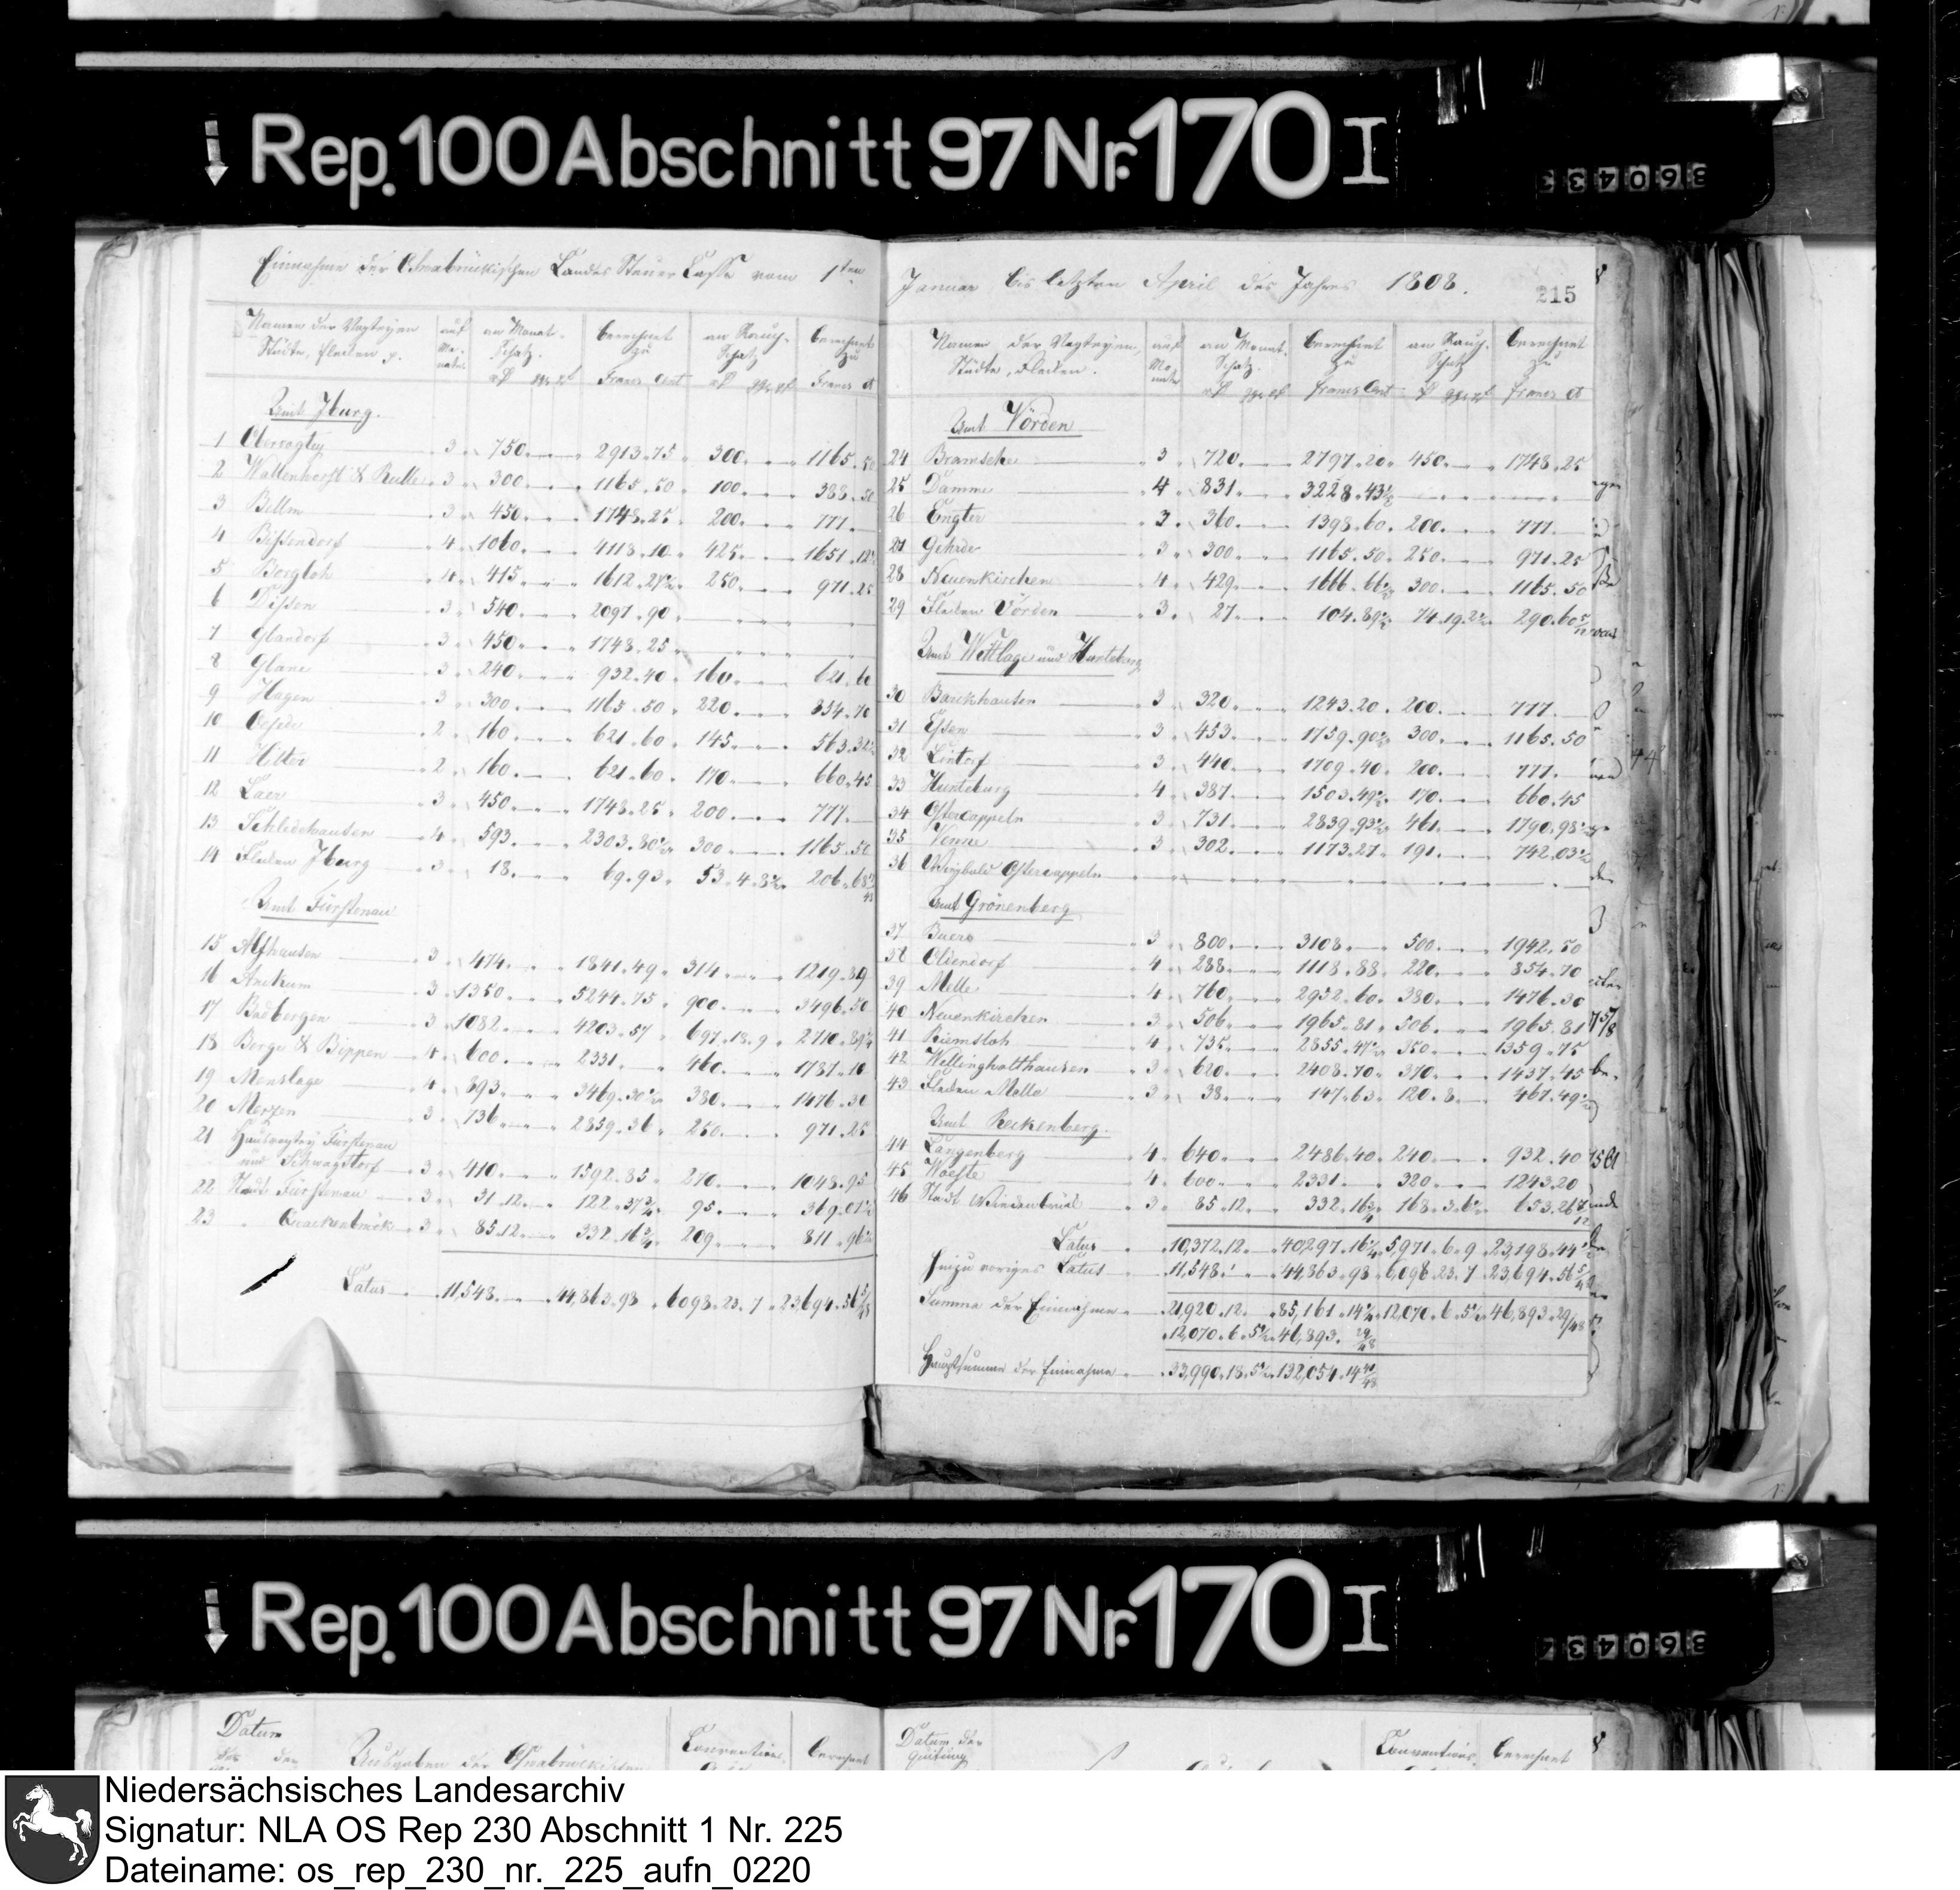 Rep. 100 Abschnitt 97 Nr. 170 I
Einnahme der Osnabrückischen Landes Steuer Casse vom 1ten
Namen der Vogteyen Städte, Flecken p. | auf Monate | an Monat-Schatz. | berechnet zu Francs Cent | an Rauch-Schatz | berechnet zu Francs Ct
Amt Iburg.
1 Obervogtey 3 750 2913.75 300 1165.50
2 Wallenhorst & Rulle 3 300 1165.50 100 388.50
3 Bellm 3 450 1748.25 200 777
4 Bissendorf 4 1060 4118.10 425 1651.12
5 Borgloh 4 415 1612.27 250 971.25
6 Dissen 3 540 2097.90
7 Glandorf 3 450 1748.25
8 Glane 3 240 932.40 160 621.60
9 Hagen 3 300 1165.50 220 854.70
10 Oesede 2 160 621.60 145 563.32
11 Hilter 2 160 621.60 170 660.45
12 Laer 3 450 1748.25 200 777
13 Schledehausen 4 593 2303.80 300 1165.50
14 Flecken Iburg 3 18 69.93 53.4.8 206.68
Amt Fürstenau
15 Alfhausen 3 474 1841.49 314 1219.89
16 Anckum 3 1350 5244.75 900 3496.50
17 Badbergen 3 1082 4203.57 697.18.9 2710.89
18 Berge & Bippen 4 600 2331 460 1787.10
19 Menslage 4 893 3469.30 380 1476.30
20 Merzen 3 736 2859.36 250 971.25
21 Hausvogtey Fürstenau
und Schwagstorf 3 410 1592.85 270 1048.95
22 Stadt Fürstenau 3 31.12 122.37 3/4 95 369.07
23 " Quackenbrück 3 85.12 332.16 3/4 209 811.96
Latus 11,548 44,863.98 6098.23.7 23694.56 5/48
Januar bis letzten April des Jahres 1808.
215
Namen der Vogteyen, Städte, Flecken. | auf Monate | an Monat-Schatz. | berechnet zu francs Cent | an Rauch-Schatz | berechnet zu francs Ct
Amt Vörden
24 Bramsche 3 720 2797.20 450 1748.25
25 Damme 4 831 3228.43 1/2
26 Engter 3 360 1398.60 200 777
27 Gehrde 3 300 1165.50 250 971.25
28 Neuenkirchen 4 429 1666.66 300 1165.50
29 Flecken Vörden 3 27 104.89 74.19.2 290.60
Amt Wittlage und Hunteburg
30 Barckhausen 3 320 1243.20 200 777
31 Essen 3 453 1759.90 300 1165.50
32 Lintorf 3 440 1709.40 200 777
33 Hunteburg 4 387 1503.49 170 660.45
34 Ostercappeln 3 731 2839.93 461 1790.98
35 Venne 3 302 1173.27 191 742.03
36 Weigbold Ostercappeln
Amt Grönenberg
37 Buer 3 800 3108 500 1942.50
38 Oldendorf 4 288 1118.88 220 854.70
39 Melle 4 760 2952.60 380 1476.30
40 Neuenkirchen 3 506 1965.81 506 1965.81
41 Riemsloh 4 735 2855.47 350 1359.75
42 Wellingholthausen 3 620 2408.70 370 1437.45
43 Flecken Melle 3 38 147.63 120.8 467.49
Amt Reckenberg.
44 Langenberg 4 640 2486.40 240 932.40
45 Woeste 4 600 2331 320 1243.20
46 Stadt Wiedenbrück 3 85.12 332.16 3/4 168.3.6 653.26
Latus 10,372.12 40,297.16 5,971.6.9 23,198.44
hinzu voriges Latus 11,548 44,863.98 6,098.23.7 23,694.56
Summa der Einnahme 21,920.12 85,161.14 12,070.6.5 46,893.29/48
12,070.6.5 46,893. 29/48
Hauptsumme der Einnahme 33,990.18.5 132,054.14
Rep. 100 Abschnitt 97 Nr. 170 I
Datum
Ausgaben der Osnabrückischen
Conventions-
berechnet
Datum der
Quitung
Conventions-
berechnet
Niedersächsisches Landesarchiv
Signatur: NLA OS Rep 230 Abschnitt 1 Nr. 225
Dateiname: os_rep_230_nr._225_aufn_0220